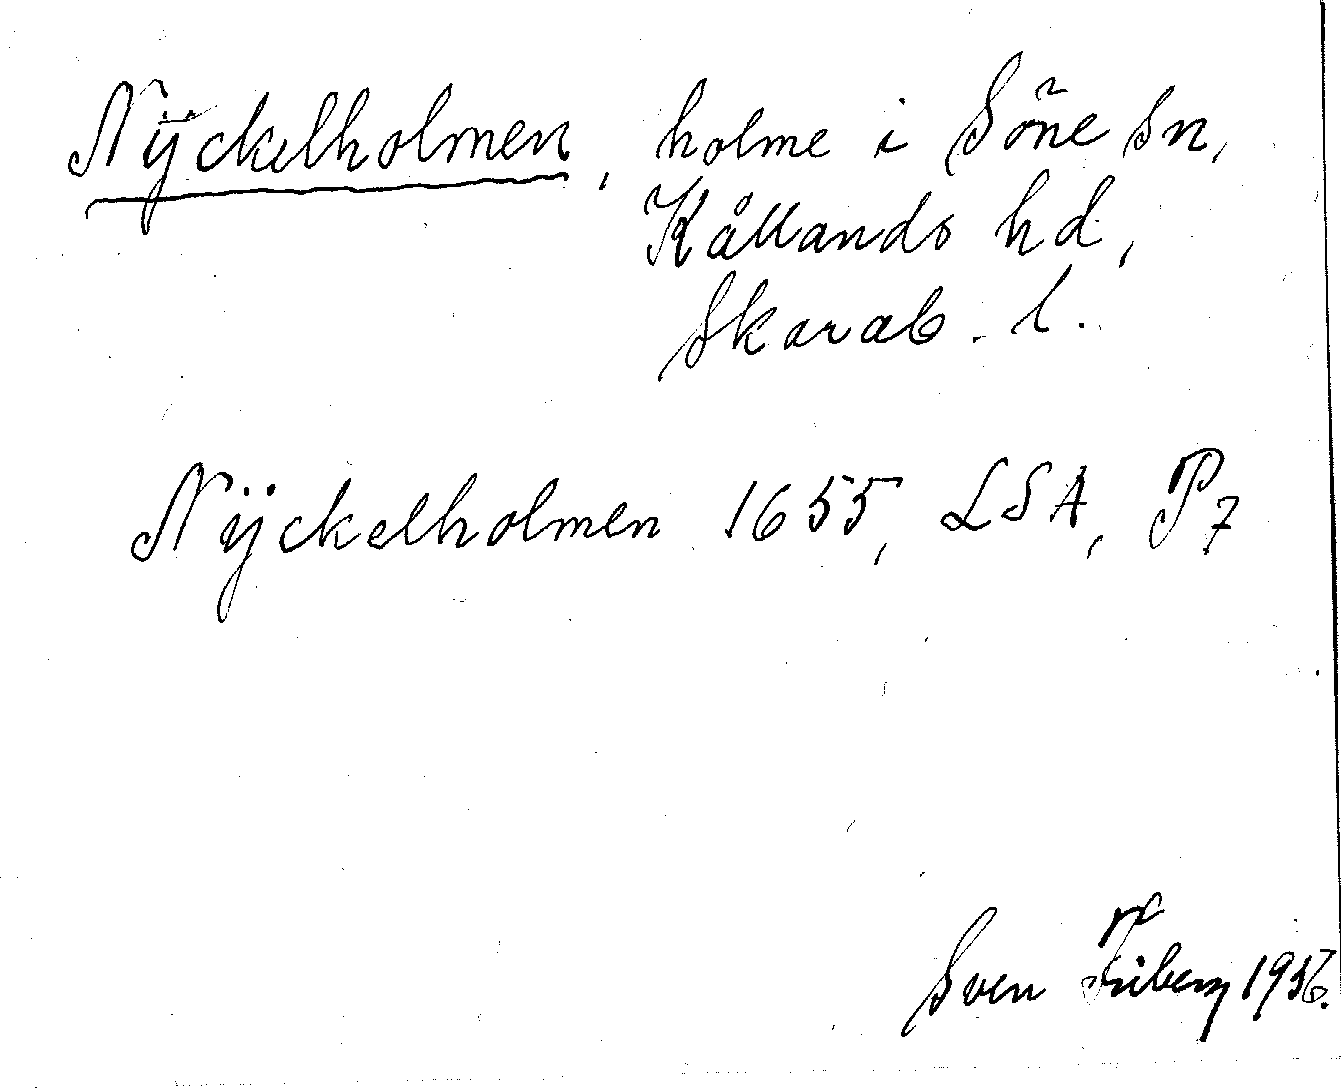 Nÿckelholmen, holme i Söne sn,
Kållands hd,
Skarab. l.
Nÿckelholmen 1655, LSA, P7
Sven Friberg 1956.